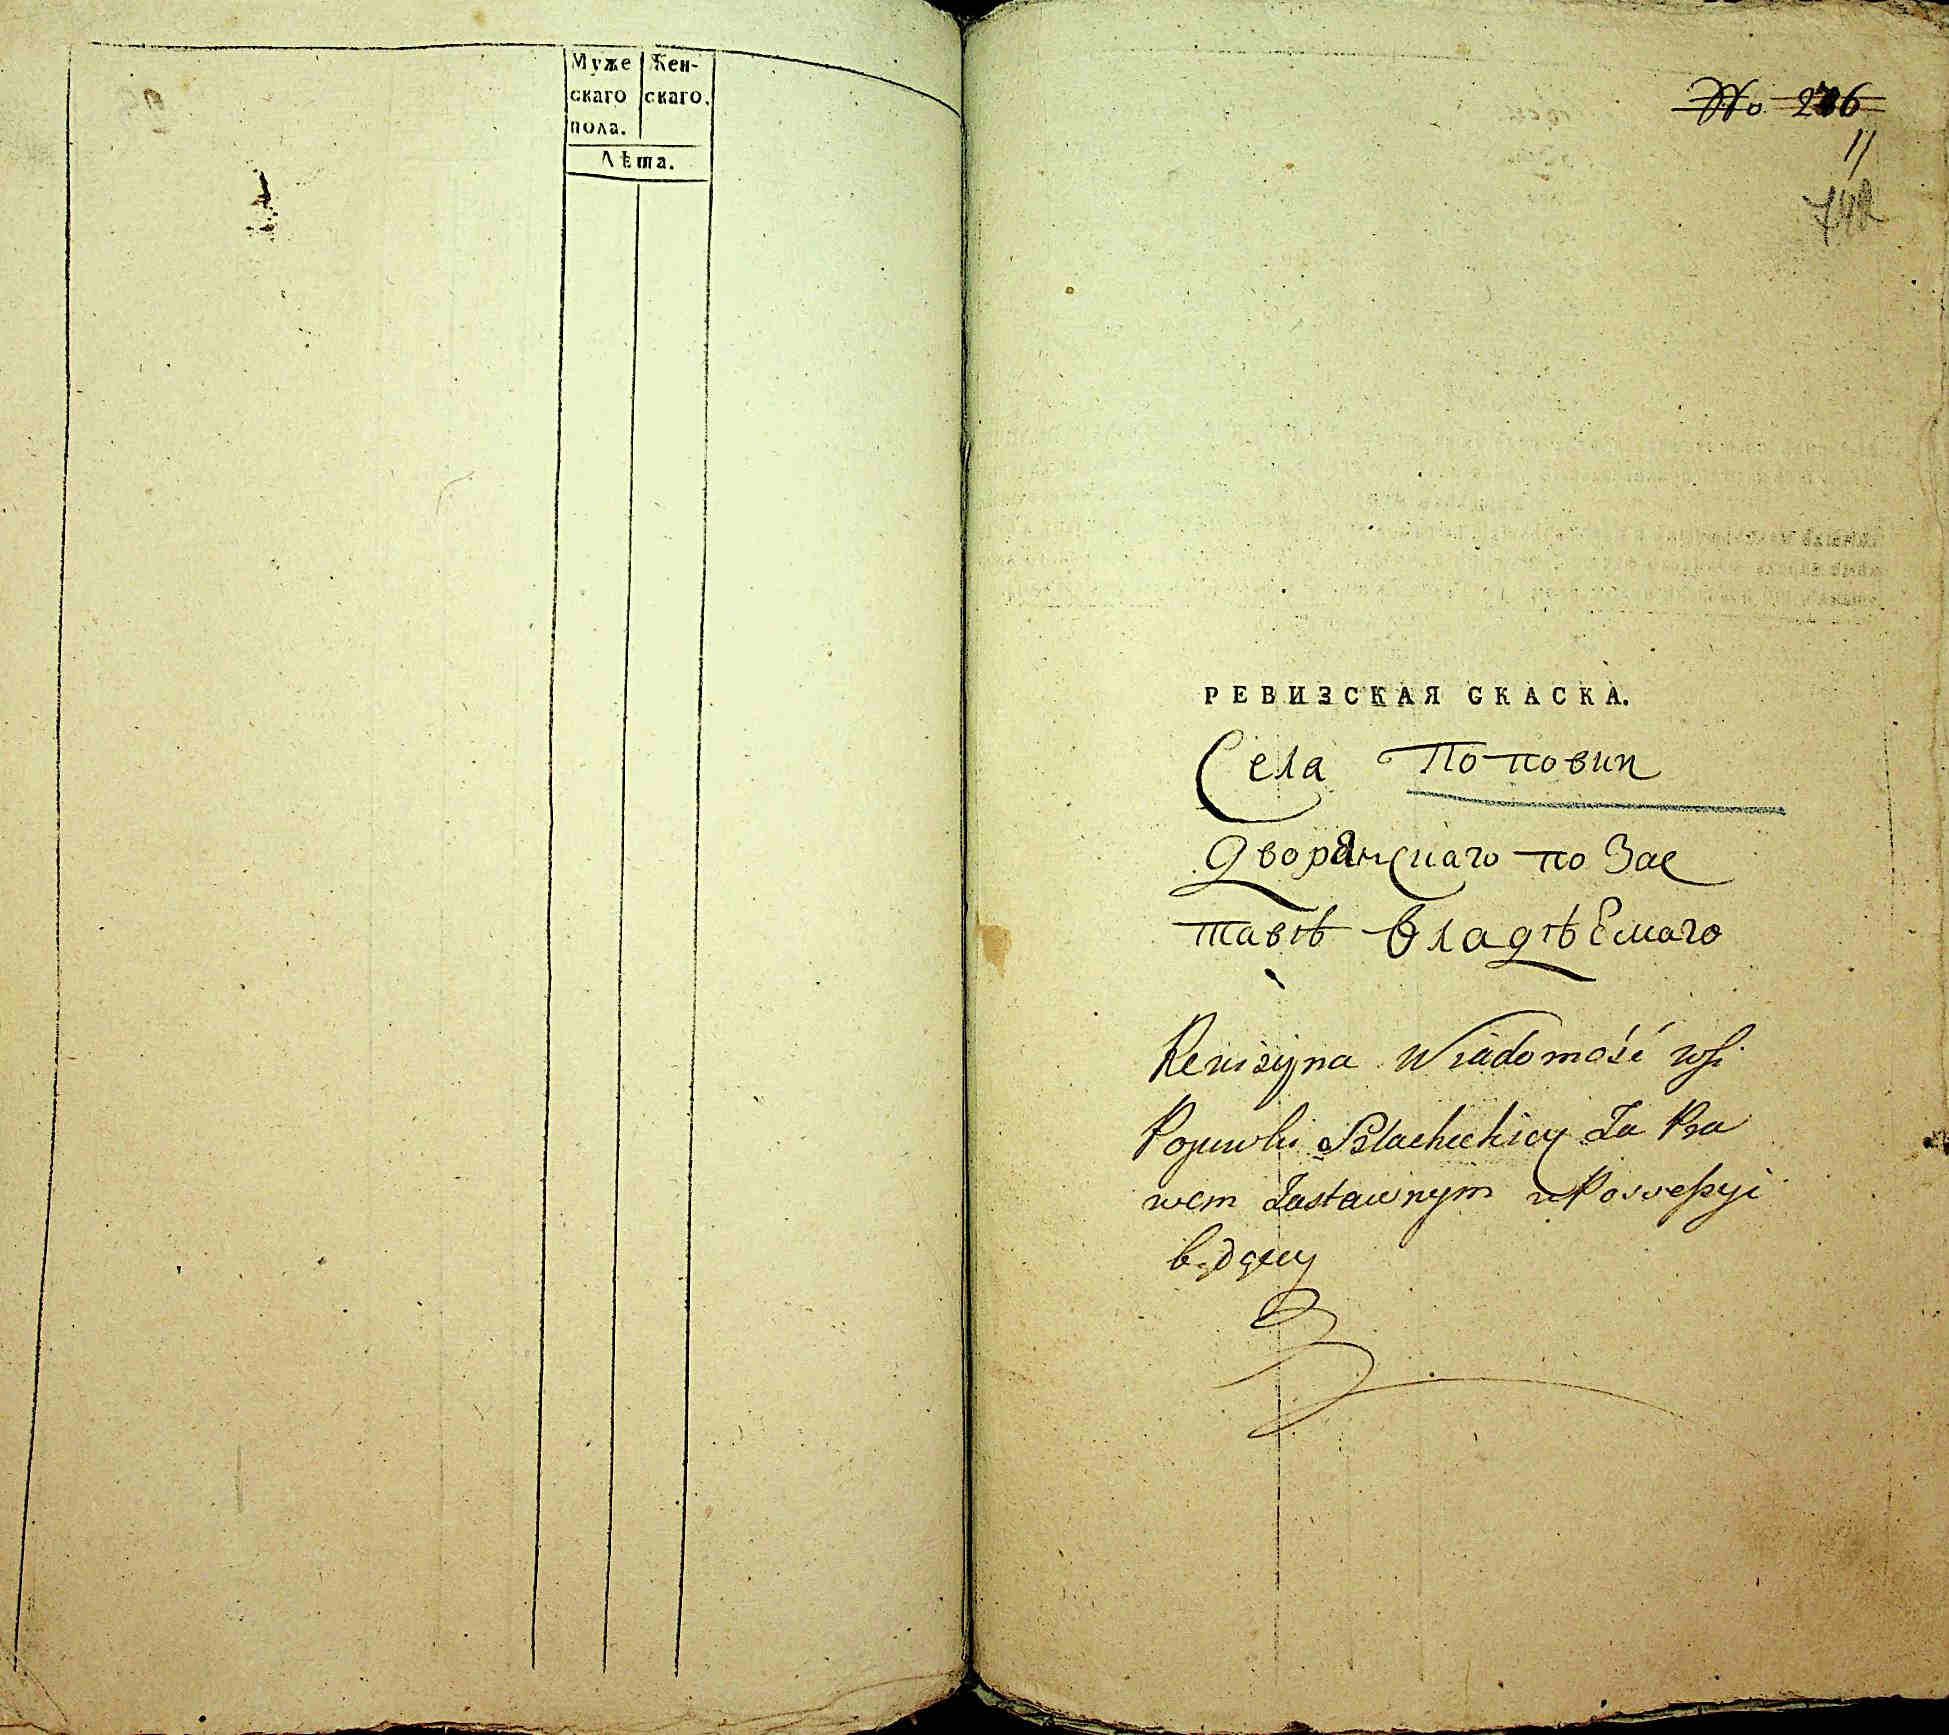 Муже
скаго
пола.
Жен-
скаго.
Лѣта.
No 286
11
РЕВИЗСКАЯ СКАСКА.
Села Поповки
Дворянскаго по Зас
тавѣ владѣемаго
Rewizyjna Wiadomość wsi
Popuwki Szlacheckiey Za Pra
wem Zastawnym w Possessyi
będącey